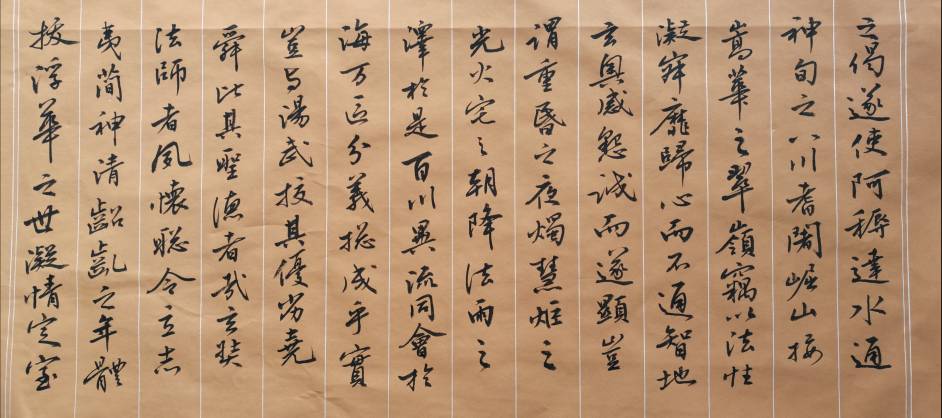 之偈遂使阿耨達水通
神甸之八川耆闍崛山接
嵩華之翠嶺竊以法性
凝寂靡歸心而不通智地
玄奧感懇誠而遂顯豈
謂重昏之夜燭慧炬之
光火宅之朝降法雨之
澤於是百川異流同會於
海万區分義揔成乎實
豈与湯武挍其優劣堯
舜比其聖德者哉玄奘
法師者夙懷聡令立志
夷簡神清齠齓之年體
拔浮華之世凝情定室